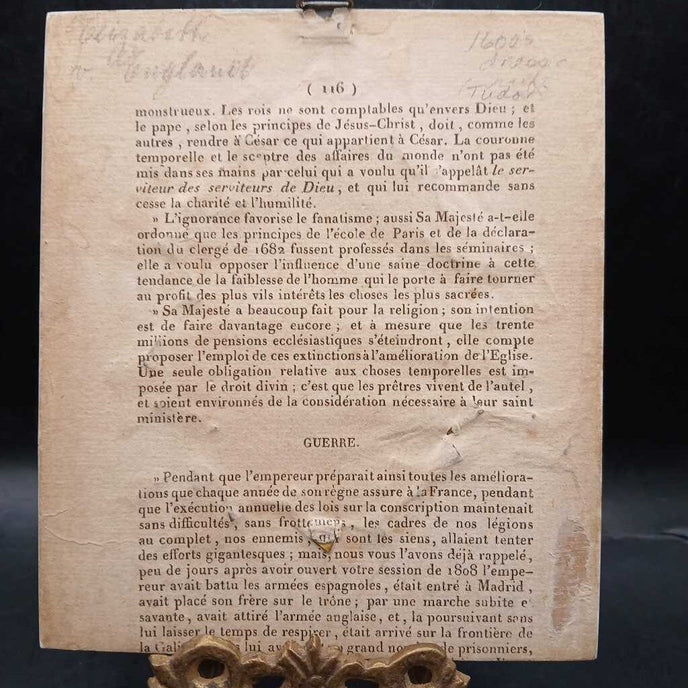 Elizabeth
England
1600s
Tudor
( 116 )
monstrueux. Les rois ne sont comptables qu'envers Dieu ; et
le pape , selon les principes de Jésus-Christ , doit , comme les
autres , rendre à César ce qui appartient à César. La couronne
temporelle et le sceptre des affaires du monde n'ont pas été
mis dans ses mains par celui qui a voulu qu'il s'appelât le ser-
viteur des serviteurs de Dieu , et qui lui recommande sans
cesse la charité et l'humilité.
» L'ignorance favorise le fanatisme ; aussi Sa Majesté a-t-elle
ordonné que les principes de l'école de Paris et de la déclara-
tion du clergé de 1682 fussent professés dans les séminaires ;
elle a voulu opposer l'influence d'une saine doctrine à cette
tendance de la faiblesse de l'homme qui le porte à faire tourner
au profit des plus vils intérêts les choses les plus sacrées.
» Sa Majesté a beaucoup fait pour la religion ; son intention
est de faire davantage encore ; et à mesure que les trente
millions de pensions ecclésiastiques s'éteindront , elle compte
proposer l'emploi de ces extinctions à l'amélioration de l'Eglise.
Une seule obligation relative aux choses temporelles est im-
posée par le droit divin ; c'est que les prêtres vivent de l'autel ,
et soient environnés de la considération nécessaire à leur saint
ministère.
GUERRE.
» Pendant que l'empereur préparait ainsi toutes les améliora-
tions que chaque année de son règne assure à la France, pendant
que l'exécution annuelle des lois sur la conscription maintenait
sans difficultés , sans frottemens , les cadres de nos légions
au complet , nos ennemis , qui sont les siens, allaient tenter
des efforts gigantesques ; mais, nous vous l'avons déjà rappelé,
peu de jours après avoir ouvert votre session de 1808 l'empe-
reur avait battu les armées espagnoles , était entré à Madrid ,
avait placé son frère sur le trône ; par une marche subite et
savante , avait attiré l'armée anglaise , et , la poursuivant sans
lui laisser le temps de respirer , était arrivé sur la frontière de
la lui grand de prisonniers,